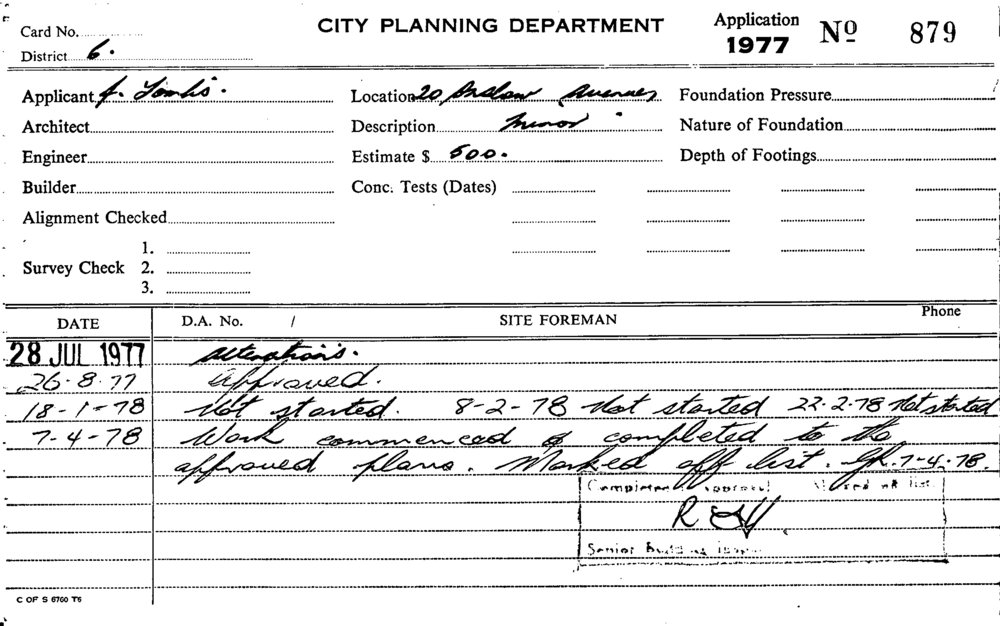 Card No.
CITY PLANNING DEPARTMENT
Application 1977 Nº 879
District 6.
Applicant J.
Location 20 Onslow Avenue
Foundation Pressure
Architect
Description Minor
Nature of Foundation
Engineer
Estimate $ 500.
Depth of Footings
Builder
Conc. Tests (Dates)
Alignment Checked
Survey Check 1. 2. 3.
DATE D.A. No. / SITE FOREMAN Phone
28 JUL 1977 Alterations.
26-8-77 Approved.
18-1-78 Not started. 8-2-78 Not started 22-2-78 Not started
7-4-78 Work commenced & completed to the
approved plans. Marked off list. 7-4-78.
Completed Approval Marked off list
Senior Building
C OF S 6760 T6